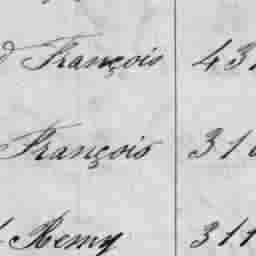 François 43
François 31
Remy 311